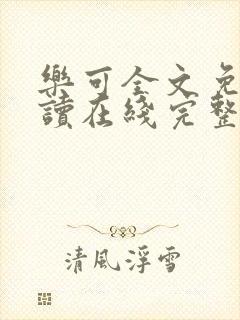 樂可全文免
讀在綫完整
清風浮雪